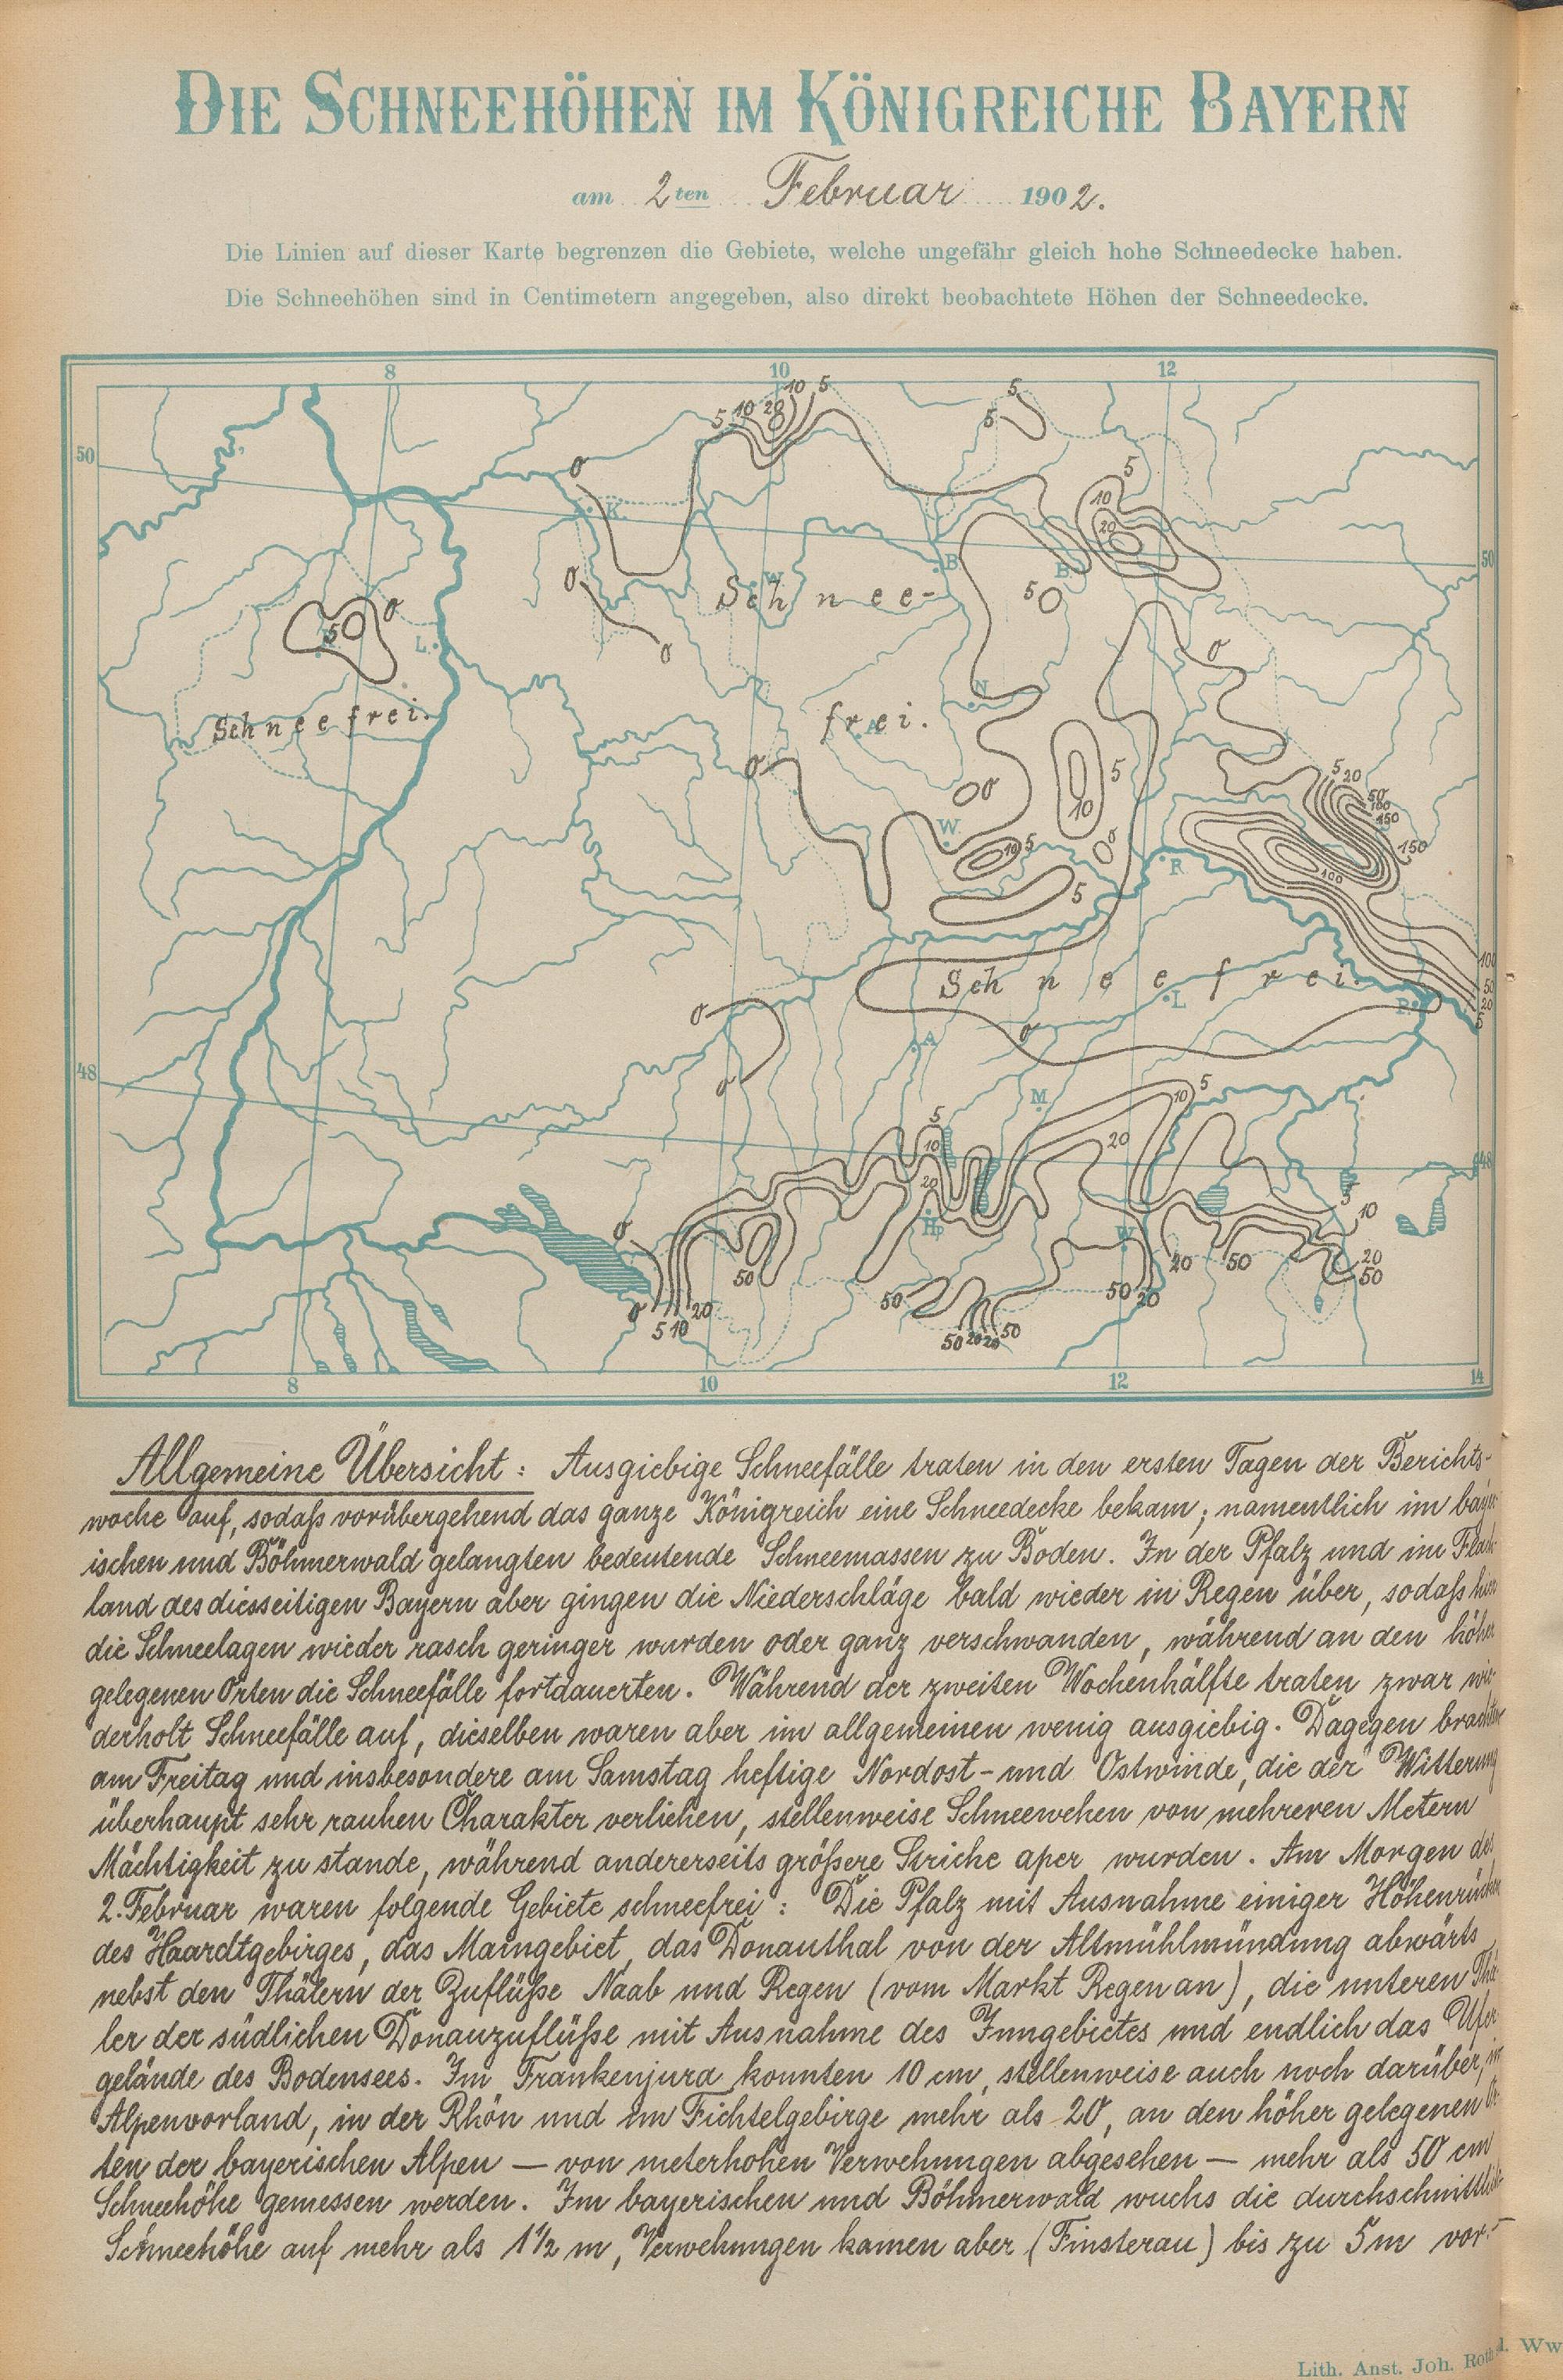 DIE SCHNEEHÖHEN IM KÖNIGREICHE BAYERN
am 2ten Februar 1902.
Die Linien auf dieser Karte begrenzen die Gebiete, welche ungefähr gleich hohe Schneedecke haben.
Die Schneehöhen sind in Centimetern angegeben, also direkt beobachtete Höhen der Schneedecke.
8 10 12
10 5
5 10 20
5
5
50
0
5
10
20
K.
50
0
W.
B
B.
Schnee-
5 0
0
5 0
L.
0
0
N
Schneefrei.
frei.
A
0
5
5 20
50
100
150
0
10
W.
150
10 5
0
R
100
5
100
50
20
5
Schneefrei.
L
P.
0
0
A
48
0
M
5
10
5
20
10
48
20
5
10
Hp
0
50
20
50
20
50
50
50 20
0
20
5 10
50 20 20 50
8 10 12 14
Allgemeine Übersicht: Ausgiebige Schneefälle traten in den ersten Tagen der Berichts-
woche auf, sodaß vorübergehend das ganze Königreich eine Schneedecke bekam; namentlich im
ischen und Böhmerwald gelangten bedeutende Schneemassen zu Boden. In der Pfalz und im
land des diesseitigen Bayern aber gingen die Niederschläge bald wieder in Regen über, sodaß
die Schneelagen wieder rasch geringer wurden oder ganz verschwanden, während an den
gelegenen Orten die Schneefälle fortdauerten. Während der zweiten Wochenhälfte traten zwar
derholt Schneefälle auf, dieselben waren aber im allgemeinen wenig ausgiebig. Dagegen
am Freitag und insbesondere am Samstag heftige Nordost- und Ostwinde, die der Witterung
überhaupt sehr rauhen Charakter verliehen, stellenweise Schneewehen von mehreren Metern
Mächtigkeit zu stande, während andererseits größere Striche aper wurden. Am Morgen des
2. Februar waren folgende Gebiete schneefrei: Die Pfalz mit Ausnahme einiger Höhenrücken
des Haardtgebirges, das Maingebiet, das Donauthal von der Altmühlmündung abwärts
nebst den Thälern der Zuflüße Naab und Regen (vom Markt Regen an), die unteren
ler der südlichen Donauzuflüße mit Ausnahme des Inngebietes und endlich das Ufer-
gelände des Bodensees. Im Frankenjura konnten 10 cm, stellenweise auch noch darüber, im
Alpenvorland, in der Rhön und im Fichtelgebirge mehr als 20, an den höher gelegenen
ten der bayerischen Alpen — von meterhohen Verwehungen abgesehen — mehr als 50 cm
Schneehöhe gemessen werden. Im bayerischen und Böhmerwald wuchs die durchschnittliche
Schneehöhe auf mehr als 1½ m, Verwehungen kamen aber (Finsterau) bis zu 5 m vor.
Lith. Anst. Joh. Ww